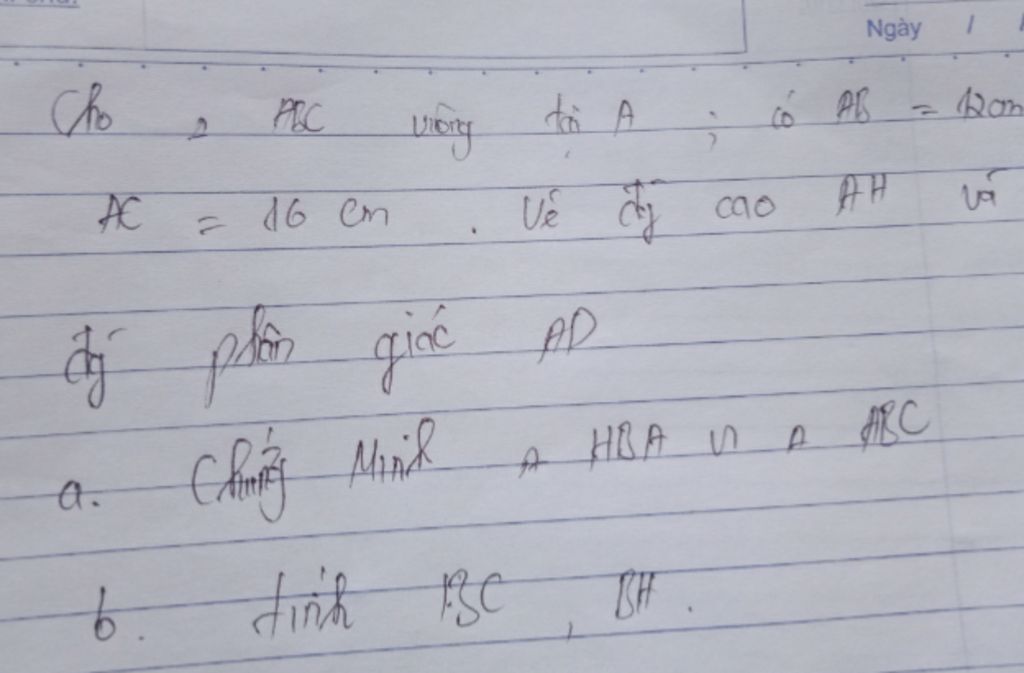 Ngày / /
Cho Δ ABC vuông tại A ; có AB = 12cm
AC = 16 cm . Vẽ đg cao AH và
đg phân giác AD
a. Chứng Minh Δ HBA ∽ Δ ABC
b. tính BC , BH .